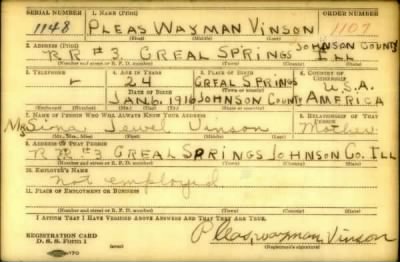 SERIAL NUMBER 1. NAME (Print) ORDER NUMBER
1148 PLEAS WAYMAN VINSON 1107
(First) (Middle) (Last)
2. ADDRESS (Print) JOHNSON COUNTY
R R #3. CREAL SPRINGS ILL
(Number and street or R. F. D. number) (Town) (County) (State)
3. TELEPHONE 4. AGE IN YEARS 5. PLACE OF BIRTH 6. COUNTRY OF CITIZENSHIP
24 CREAL SPRINGS U.S.A.
DATE OF BIRTH
JAN. 6. 1916 JOHNSON COUNTY AMERICA
(Exchange) (Number) (Mo.) (Day) (Yr.) (State or country)
7. NAME OF PERSON WHO WILL ALWAYS KNOW YOUR ADDRESS 8. RELATIONSHIP OF THAT PERSON
Mrs Jewel Vinson Mother
(Mr., Mrs., Miss) (First) (Middle) (Last)
9. ADDRESS OF THAT PERSON
R R #3 CREAL SPRINGS JOHNSON CO. ILL
(Number and street or R. F. D. number) (Town) (County) (State)
10. EMPLOYER'S NAME
Not employed
11. PLACE OF EMPLOYMENT OR BUSINESS
(Number and street or R. F. D. number) (Town) (County) (State)
I AFFIRM THAT I HAVE VERIFIED ABOVE ANSWERS AND THAT THEY ARE TRUE.
REGISTRATION CARD
D. S. S. FORM 1 Pleas, wayman, Vinson
(over) (Registrant's signature)